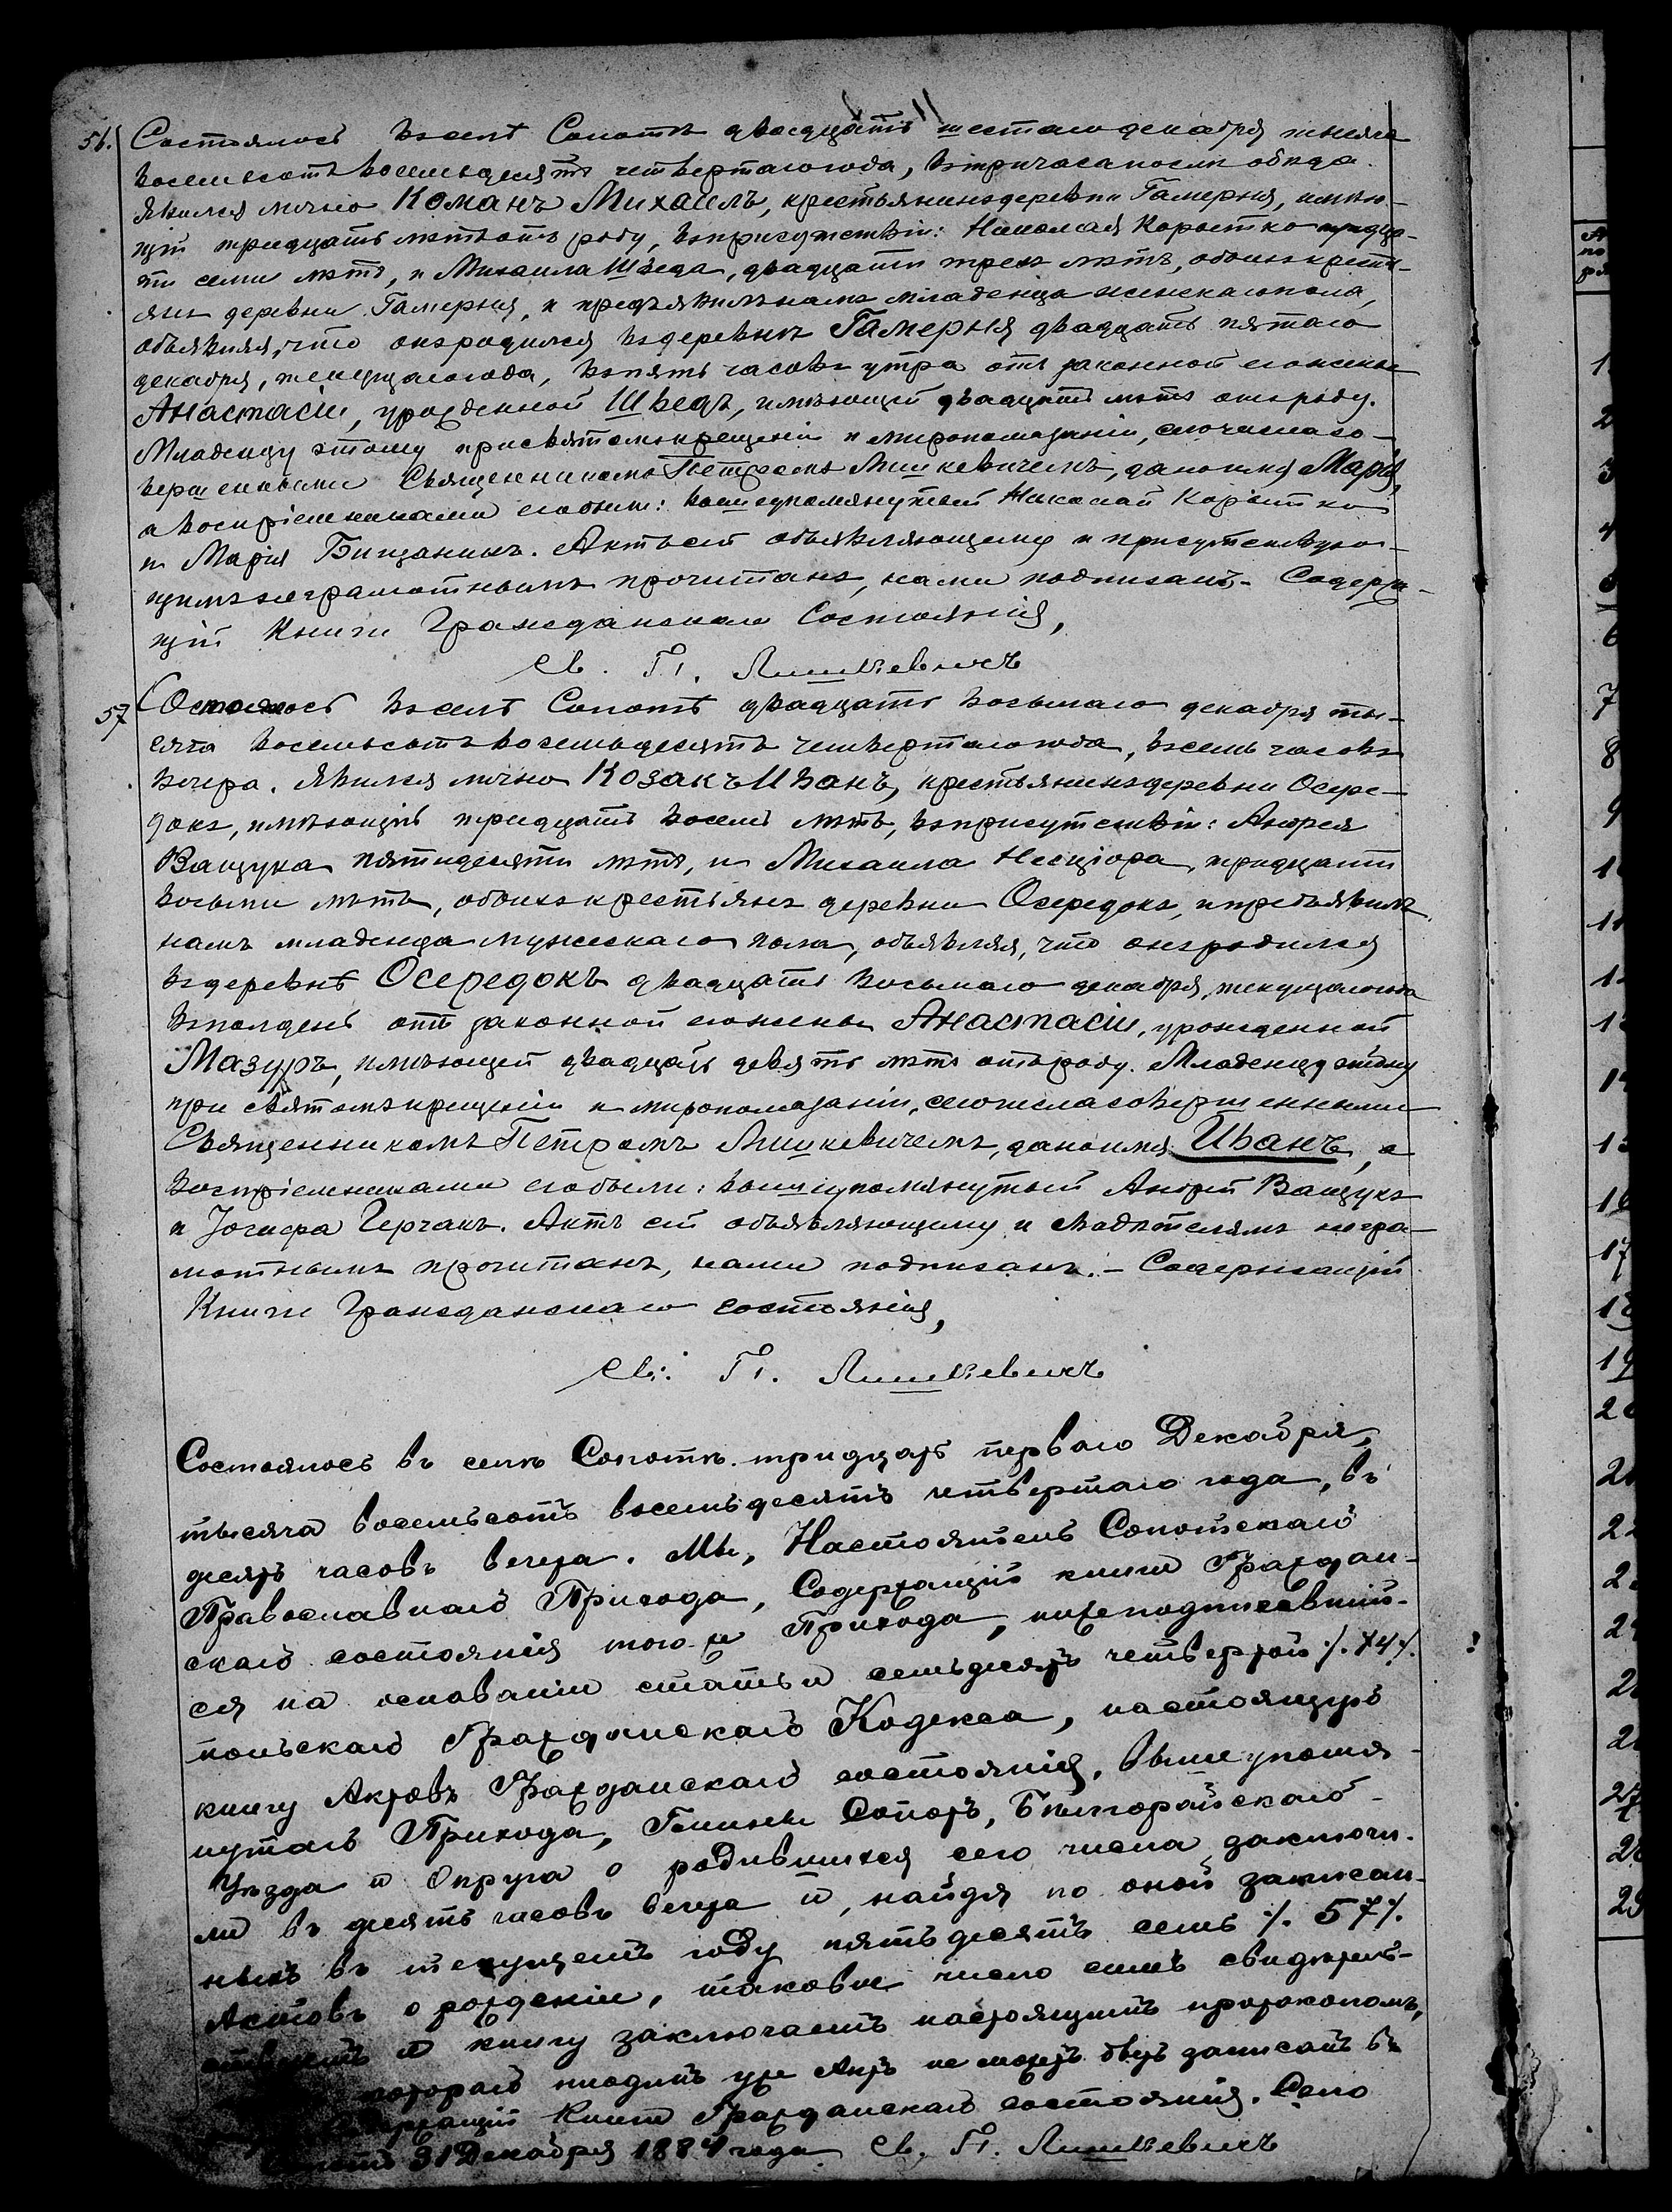 56. Состоялось въ селѣ Сопотѣ двадцать шестаго декабря тысяча
восемьсотъ восемьдесятъ четвертаго года, въ три часа послѣ обѣда.
Явился лично Команъ Михаилъ, крестьянинъ деревни Гамерня, имѣю-
щій тридцать лѣтъ отъ роду, въ присутствіи: Николая Коростко тридца-
ти семи лѣтъ, и Михаила Шведа, двадцати трехъ лѣтъ, обоихъ кресть-
янъ деревни Гамерня, и предъявилъ намъ младенца женскаго пола,
объявляя, что онъ родился въ деревнѣ Гамерня двадцать пятаго
декабря, текущаго года, въ пять часовъ утра отъ законной его жены
Анастасіи, урожденной Шведъ, имѣющей двадцать лѣтъ отъ роду.
Младенцу этому при святомъ крещеніи и миропомазаніи, сего числа со-
вершенными Священникомъ Петромъ Лишкевичемъ, дано имя Марія,
а воспріемниками его были: вышеупомянутый Николай Коростко
и Марія Бищаникъ. Актъ сей объявляющему и присутствую-
щимъ неграмотнымъ прочитанъ, нами подписанъ. - Содержа-
щій Книги Гражданскаго Состоянія,
Св. П. Лишкевичъ
57 Состоялось въ селѣ Сопотѣ двадцать восьмаго декабря ты-
сяча восемьсотъ восемьдесятъ четвертаго года, въ семь часовъ
вечера. Явился лично Козакъ Иванъ, крестьянинъ деревни Осере-
докъ, имѣющій тридцать восемь лѣтъ, въ присутствіи: Андрея
Ващука пятидесяти лѣтъ, и Михаила Несціора, тридцати
восьми лѣтъ, обоихъ крестьянъ деревни Осередокъ, и предъявилъ
намъ младенца мужескаго пола, объявляя, что онъ родился
въ деревнѣ Осередокъ двадцать восьмаго декабря, текущаго года
въ полдень отъ законной его жены Анастасіи, урожденной
Мазуръ, имѣющей двадцать девять лѣтъ отъ роду. Младенцу этому
при святомъ крещеніи и миропомазаніи, сего числа совершенными
Священникомъ Петромъ Лишкевичемъ, дано имя Иванъ, а
воспріемниками его были: вышеупомянутый Андрей Ващукъ
и Іосифа Герчакъ. Актъ сей объявляющему и свидѣтелямъ негра-
мотнымъ прочитанъ, нами подписанъ. - Содержащій
Книги Гражданскаго состоянія,
Св. П. Лишкевичъ
Состоялось въ селѣ Сопотѣ тридцать перваго Декабря,
тысяча восемьсотъ восемьдесятъ четвертаго года, въ
десять часовъ вечера. Мы, Настоятель Сопотскаго
Православнаго Прихода, Содержащій книги Граждан-
скаго состоянія того-же Прихода, нижеподписавшій-
ся на основаніи статьи семьдесятъ четвертой /. 74 /.
польскаго Гражданскаго Кодекса, настоящую
книгу Актовъ Гражданскаго состоянія, вышеупомя-
нутаго Прихода, Гмины Сопотъ, Бѣлгорайскаго
Уѣзда и Округа о родившихся сего числа заключи-
ли въ десять часовъ вечера и, найдя по оной записан-
ныхъ въ текущемъ году пятьдесятъ семь /. 57 /.
Актовъ о рожденіи, таковое число симъ свидѣтель-
ствуетъ и книгу заключаетъ настоящимъ протоколомъ,
котораго ниодинъ уже Актъ не можетъ быть записанъ въ
Содержащій Книги Гражданскаго состоянія. Село
Сопотъ 31 Декабря 1884 года Св. П. Лишкевичъ
1
2
3
4
5
6
7
8
9